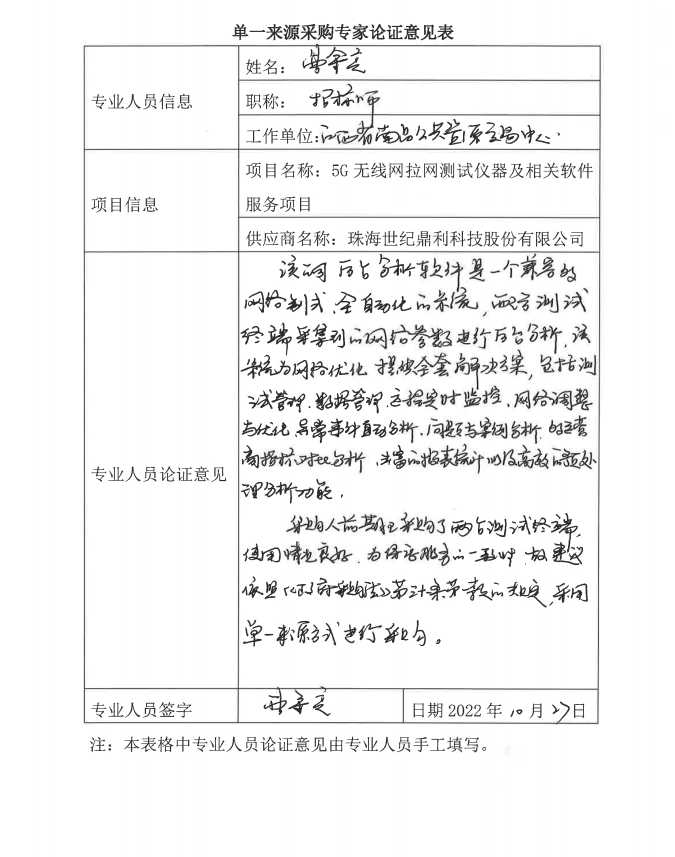 单一来源采购专家论证意见表
专业人员信息
姓名：
职称： 招标师
工作单位：江西省南昌公共资源交易中心
项目信息
项目名称：5G 无线网拉网测试仪器及相关软件
服务项目
供应商名称：珠海世纪鼎利科技股份有限公司
专业人员论证意见
该网 后台分析软件是一个兼容多
网络制式、全自动化的系统，配合测试
终端采集到的网络参数进行后台分析，该
系统为网络优化 提供全套解决方案，包括测
试管理、数据管理、远程实时监控、网络调整
与优化、异常事件自动分析、问题与案例分析、
指标对比分析、丰富的报表统计以及高效的 处
理分析功能。
采购人前期已采购了两台测试终端，
使用情况良好，为保证服务的一致性，故建议
依照《政府采购法》第三十一条第 款的规定，采用
单一来源方式进行采购。
专业人员签字
日期 2022 年 10 月 27 日
注：本表格中专业人员论证意见由专业人员手工填写。